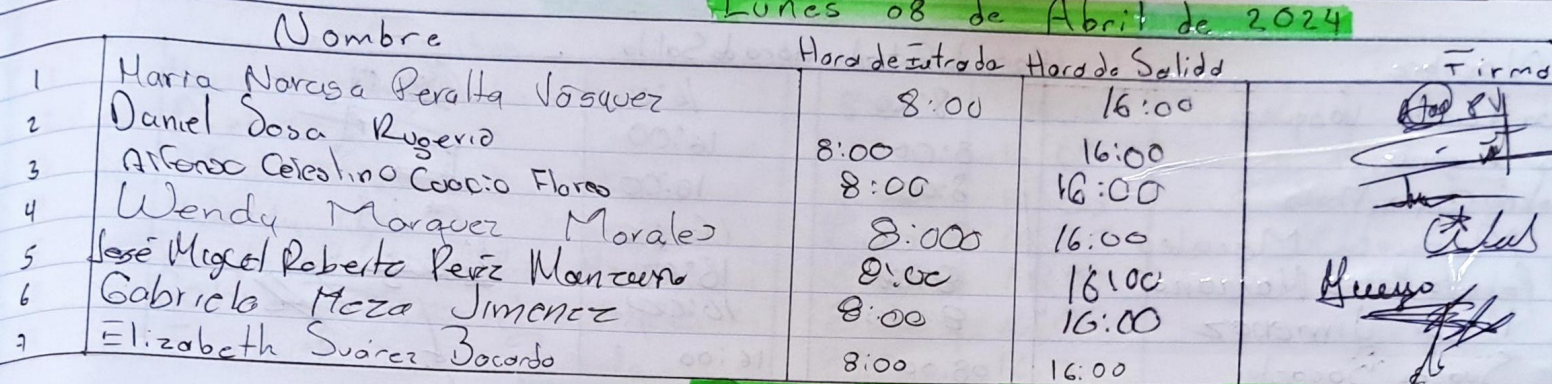 Lunes 08 de Abril de 2024
Nombre Hora de Entrada Hora de Salida Firma
1 Maria Narcisa Peralta Vásquez 8:00 16:00
2 Daniel Sosa Rugerio 8:00 16:00
3 Alfonso Celestino Flores 8:00 16:00
4 Wendy Marquez Morales 8:000 16:00
5 José Miguel Roberto Peréz Manzano 8:00 16:00
6 Gabriela Meza Jimenez 8:00 16:00
7 Elizabeth Suárez Bocardo 8:00 16:00